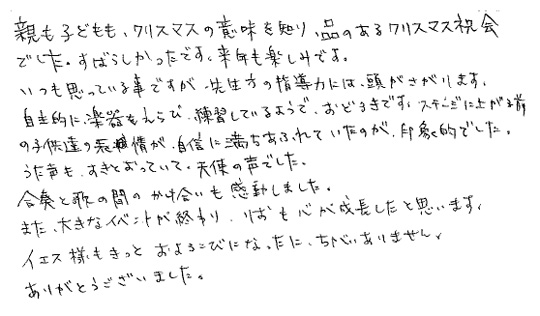 親も子どもも、クリスマスの意味を知り、品のあるクリスマス祝会
でした。すばらしかったです。来年も楽しみです。
いつも思っている事ですが、先生方の指導力には、頭がさがります。
自主的に、楽器もえらび、練習しているようで、おどろきです。ステージに上がる前
の子供達の表情が、自信に満ちあふれていたのが、印象的でした。
うた声も、すきとおっていて、天使の声でした。
合奏と歌の間のかけ合いも感動しました。
また、大きなイベントが終わり、りおも心が成長したと思います。
イエス様もきっとおよろこびになったに、ちがいありません。
ありがとうございました。